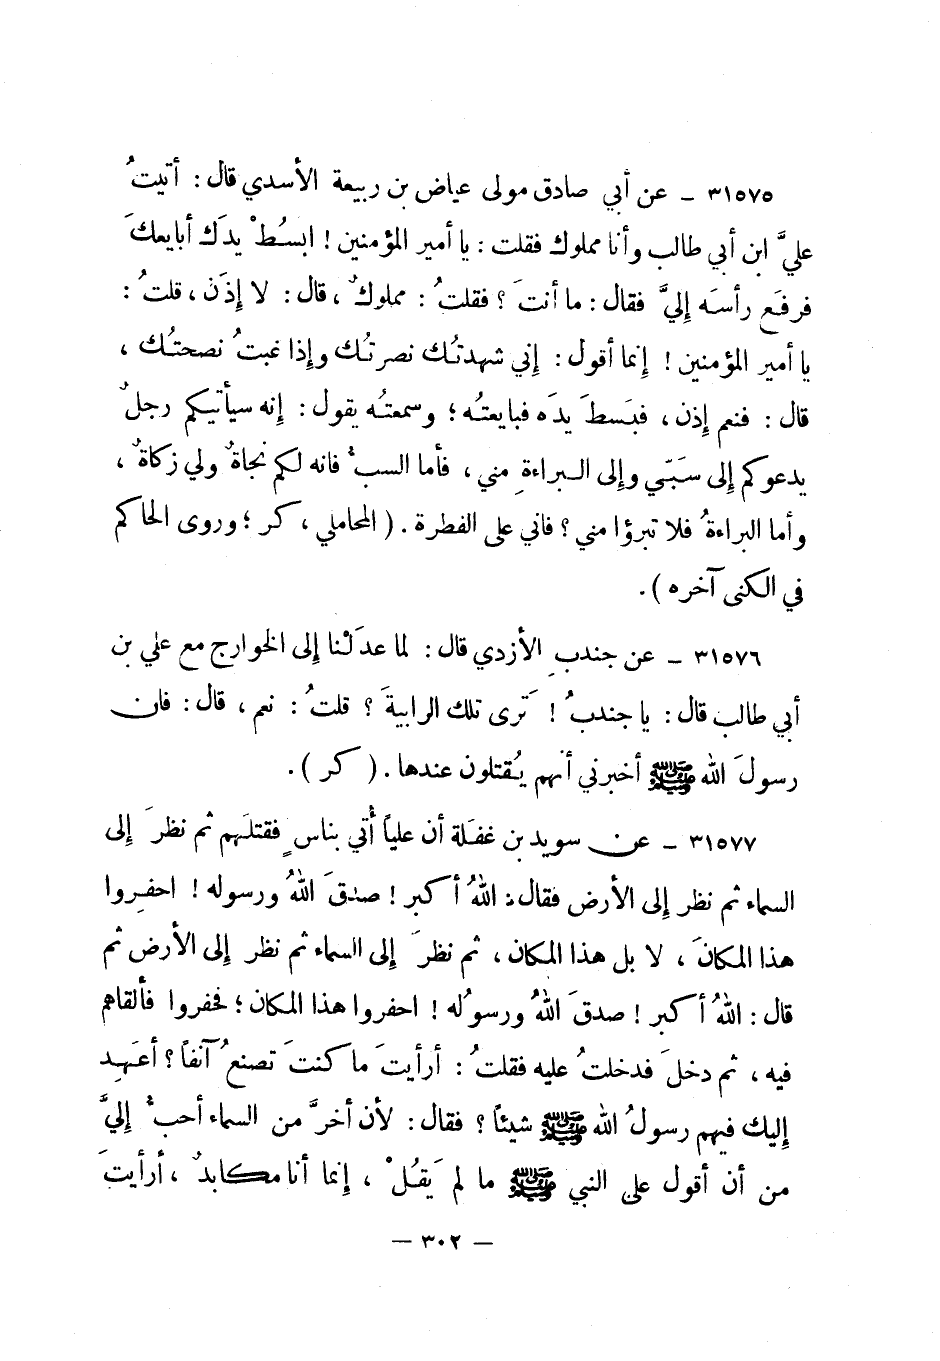 ٣١٥٧٥ ـ عن أبي صادق مولى عياض بن ربيعة الأسدي قال : أتيتُ
عليَّ ابن أبي طالب وأنا مملوك فقلت : يا أمير المؤمنين ! ابسُطْ يدَك أبايعكَ
فرفَع رأسَه إِليَّ فقال : ما أنتَ ؟ فقلتُ : مملوكٌ ، قال : لا إِذَن ، قلتُ :
يا أمير المؤمنين ! إِنما أقول : إِني شهدتُك نصرتُك وإِذا غبتُ نصحتُك ،
قال : فنعم إِذن ، فبَسطَ يدَه فبايعتُه ؛ وسمعتُه يقول : إِنه سيأتيكم رجلٌ
يدعوكم إِلى سَبّي وإِلى البراءةِ مني ، فأما السبُّ فانه لكم نجاةٌ ولي زكاةٌ ،
وأما البراءةُ فلا تبرؤا مني ؟ فاني على الفطرة . ( المحاملي ، كر ؛ وروى الحاكم
في الكنى آخره ) .
٣١٥٧٦ ـ عن جندبِ الأزدي قال : لما عدَلْنا إِلى الخوارج مع علي بن
أبي طالب قال : يا جندبُ ! تَرى تلك الرابيةَ ؟ قلتُ : نعم ، قال : فان
رسولَ الله ﷺ أخبرني أنهم يُقتلون عندها . ( كر ) .
٣١٥٧٧ ـ عن سويد بن غفَلة أن علياً أُتي بناسٍ فقتلَهم ثم نظرَ إِلى
السماء ثم نظر إِلى الأرض فقال : اللهُ أكبر ! صدقَ اللهُ ورسوله ! احفِروا
هذا المكانَ ، لا بل هذا المكان ، ثم نظرَ إِلى السماء ثم نظر إِلى الأرض ثم
قال : اللهُ أكبر ! صدقَ اللهُ ورسولُه ! احفروا هذا المكان ؛ فحفروا فألقاهم
فيه ، ثم دخلَ فدخلتُ عليه فقلتُ : أرأيتَ ما كنتَ تصنعُ آنفاً ؟ أعَهِد
إِليك فيهم رسولُ الله ﷺ شيئاً ؟ فقال : لأن أخرَّ من السماء أحبُّ إِليَّ
من أن أقول على النبي ﷺ ما لم يَقُلْ ، إِنما أنا مكابدٌ ، أرأيتَ
ـ ٣٠٢ ـ